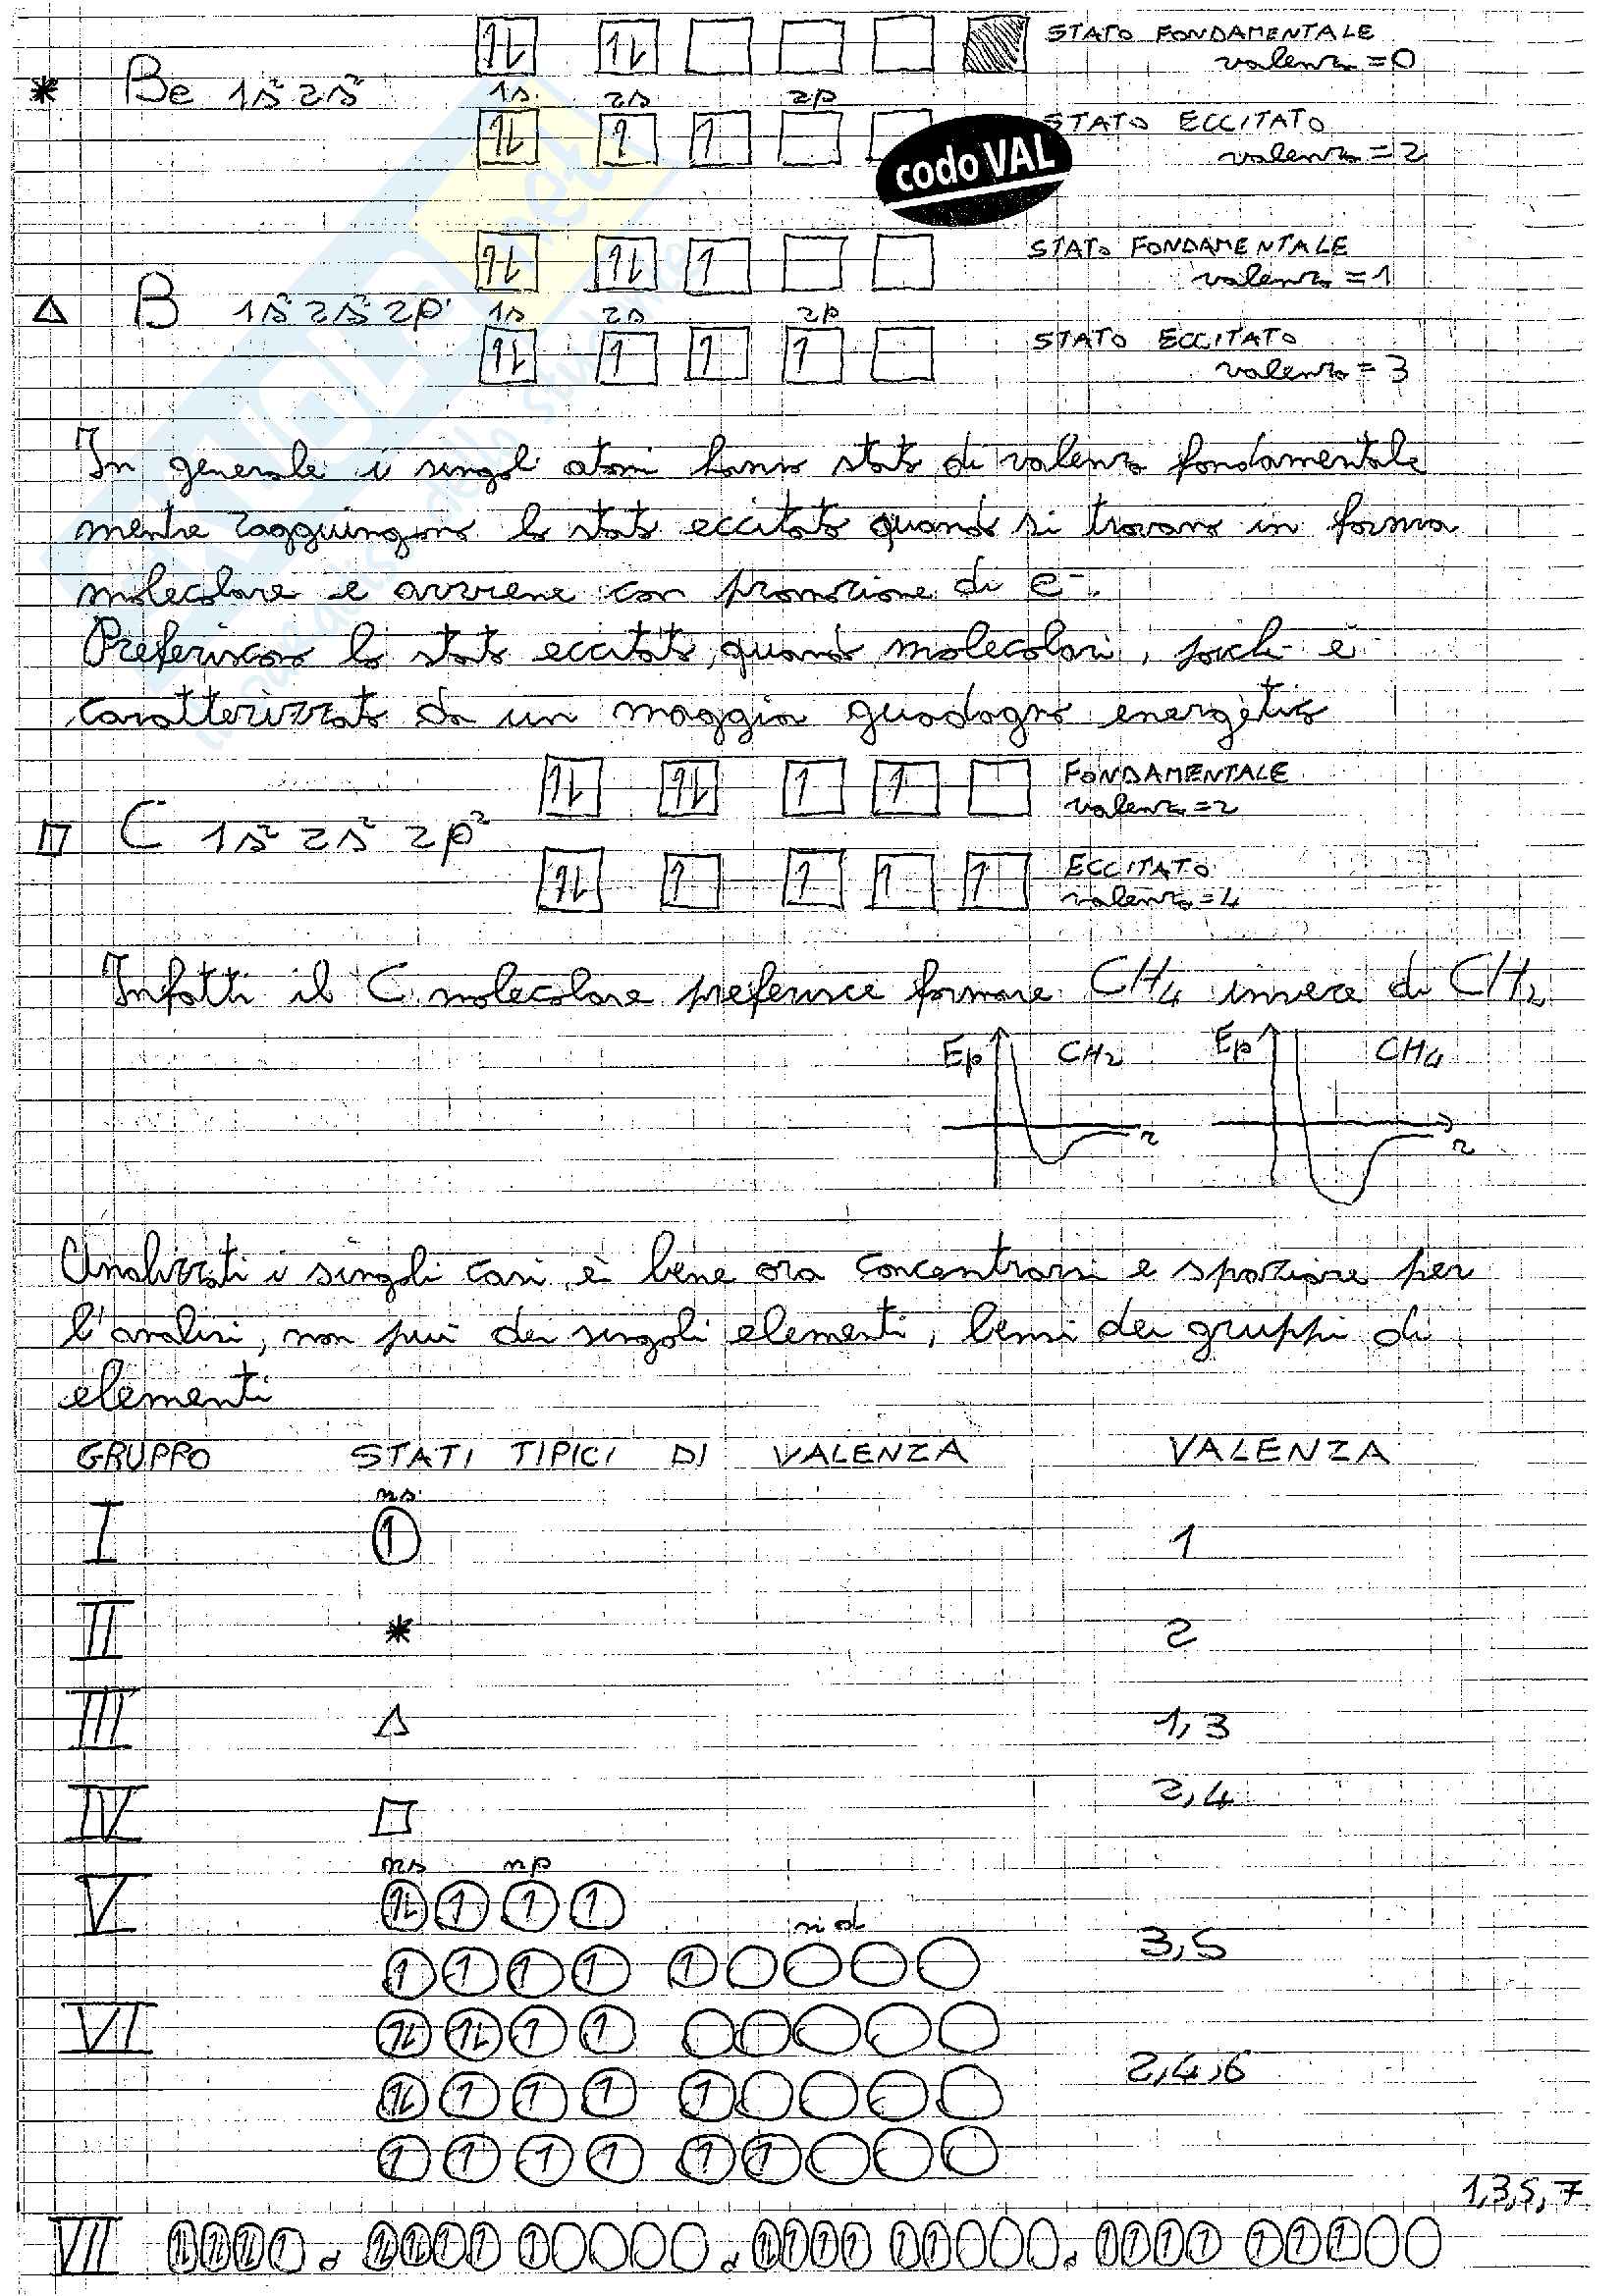 STATO FONDAMENTALE
valenza = 0
* Be 1s² 2s²
1s 2s 2p
STATO ECCITATO
valenza = 2
codo VAL
STATO FONDAMENTALE
valenza = 1
△ B 1s² 2s² 2p¹
1s 2s 2p
STATO ECCITATO
valenza = 3
In generale i singoli atomi hanno stato di valenza fondamentale
mentre raggiungono lo stato eccitato quando si trovano in forma
molecolare e avviene con promozione di e⁻.
Preferiscono lo stato eccitato, quando molecolari, poichè è
caratterizzato da un maggior guadagno energetico
FONDAMENTALE
valenz = 2
□ C 1s² 2s² 2p²
ECCITATO
valenza = 4
Infatti il C molecolare preferisce formare CH₄ invece di CH₂
Ep CH₂ Ep CH₄
r r
Analizzati i singoli casi, è bene ora concentrarsi e spaziare per
l'analisi, non più dei singoli elementi, bensì dei gruppi di
elementi
GRUPPO STATI TIPICI DI VALENZA VALENZA
ns
I 1
II * 2
III △ 1,3
IV □ 2,4
ns np
V
nd
3,5
VI
2,4,6
1,3,5,7
VII